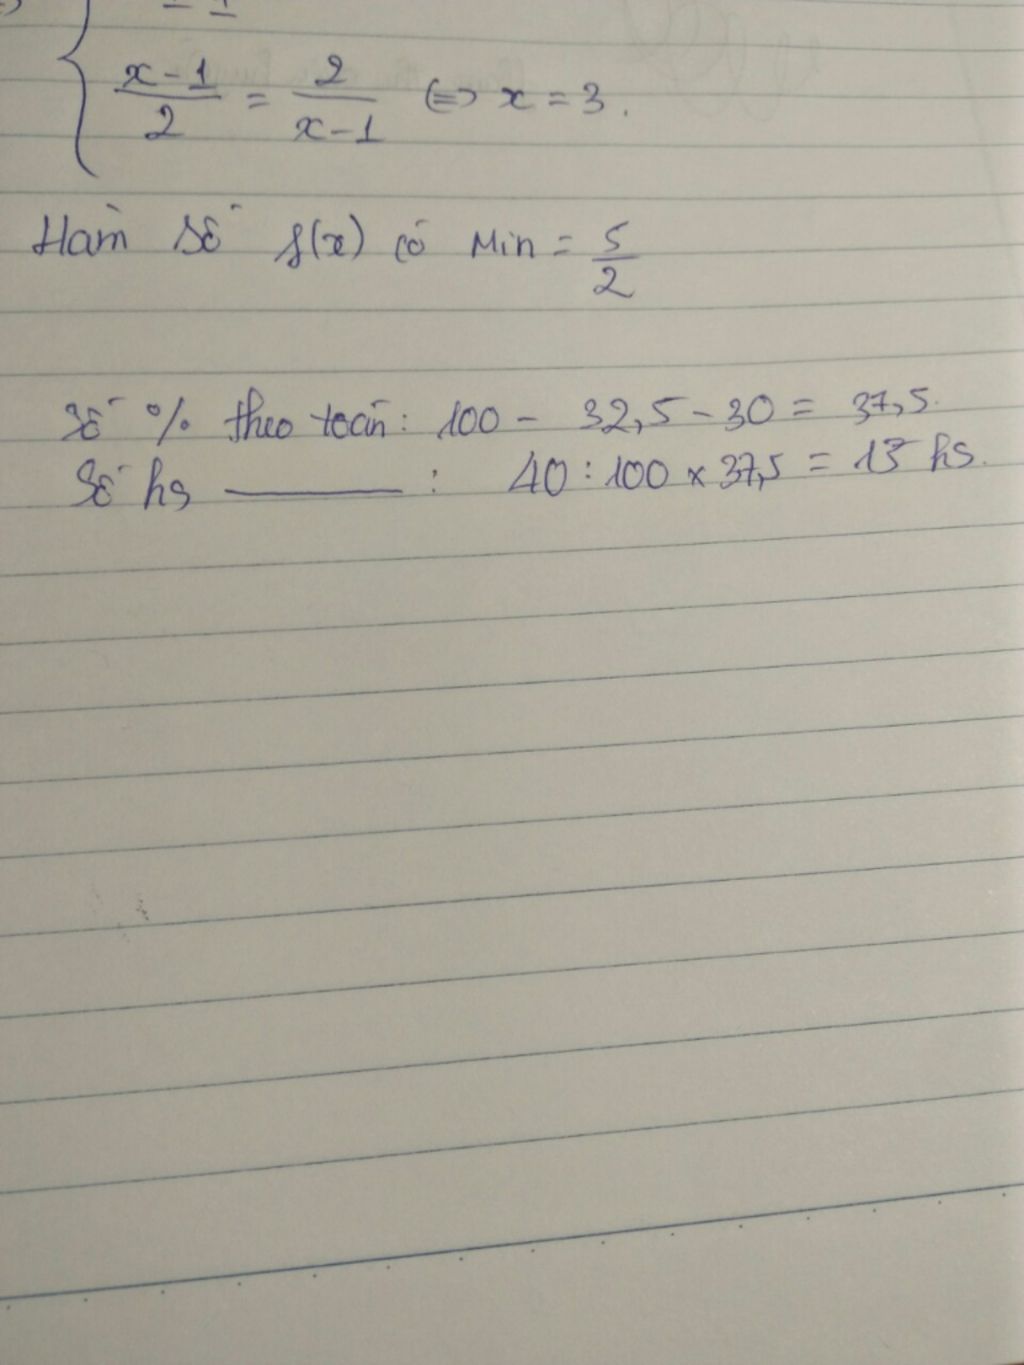 x-1/2 = 2/x-1 ⇔ x = 3.
Hàm số f(x) có Min = 5/2
Số % theo toán: 100 - 32,5 - 30 = 37,5.
Số hs ———— : 40 : 100 x 37,5 = 15 hs.